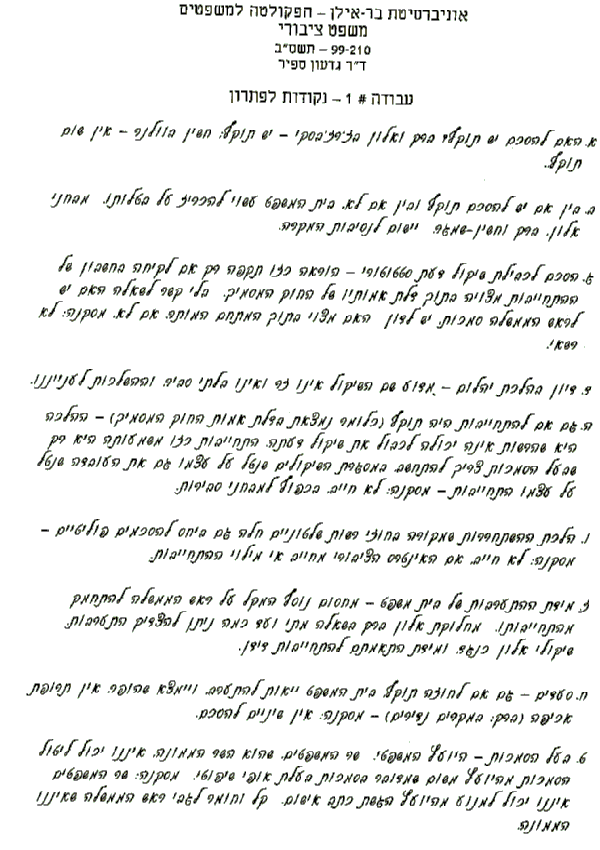 אוניברסיטת בר-אילן – הפקולטה למשפטים
משפט ציבורי
99-210 – תשס"ב
ד"ר גדעון ספיר
עבודה # 1 – נקודות לפתרון
א. האם להסכם יש תוקף? ברק ואלון בז'רז'בסקי – יש תוקף; חשין בוולנר – אין שום
תוקף.
ב. בין אם יש להסכם תוקף ובין אם לא, בית המשפט עשוי להכריז על בטלותו. מבחני
אלון, ברק וחשין-שמגר. יישום לנסיבות המקרה.
ג. הסכם לכבילת שיקול דעת סטטוטורי – הוראה כזו תקפה רק אם לקיחה בחשבון של
ההתחייבות מצויה בתוך דלת אמותיו של החוק המסמיך. בלי קשר לשאלה האם יש
לראש הממשלה סמכות, יש לדון האם מצוי בתוך המתחם המותר אם לא. מסקנה: לא
רשאי.
ד. דיון בהלכת יהלום – מדוע שם השיקול אינו זר ואינו בלתי סביר, וההשלכות לענייננו.
ה. גם אם להתחייבות היה תוקף (כלומר נמצאת בדלת אמות החוק המסמיך) – ההלכה
היא שהרשות אינה יכולה לכבול את שיקול דעתה. התחייבות כזו משמעותה היא רק
שבעל הסמכות צריך להתחשב במסגרת השיקולים שנטל על עצמו גם את העובדה שנטל
על עצמו התחייבות – מסקנה: לא חייב, בכפוף למבחני סבירות.
ו. הלכת ההשתחררות שמקורה בחוזי רשות שלטוניים חלה גם ביחס להסכמים פוליטיים –
מסקנה: לא חייב, אם האינטרס הציבורי מחייב אי מילוי ההתחייבות.
ז. מידת ההתערבות של בית משפט – מחסום נוסף המקל על ראש הממשלה להתחמק
מהתחייבותו. מחלוקת אלון ברק בשאלה מתי ועד כמה ניתן להצדיק התערבות.
שיקולי אלון כנגד, ומידת התאמתם להתחייבות דידן.
ח. סעדים – גם אם לחוזה תוקף, בית המשפט ייאות להתערב, ויימצא שהופר, אין תרופת
אכיפה (ברק: במקרים נדירים) – מסקנה: אין שיניים להסכם.
ט. בעל הסמכות – היועץ המשפטי. שר המשפטים, שהוא השר הממונה, איננו יכול ליטול
הסמכות מהיועץ משום שמדובר בסמכות בעלת אופי שיפוטי. מסקנה: שר המשפטים
איננו יכול למנוע מהיועץ הגשת כתב אישום. קל וחומר לגבי ראש הממשלה שאיננו
הממונה.